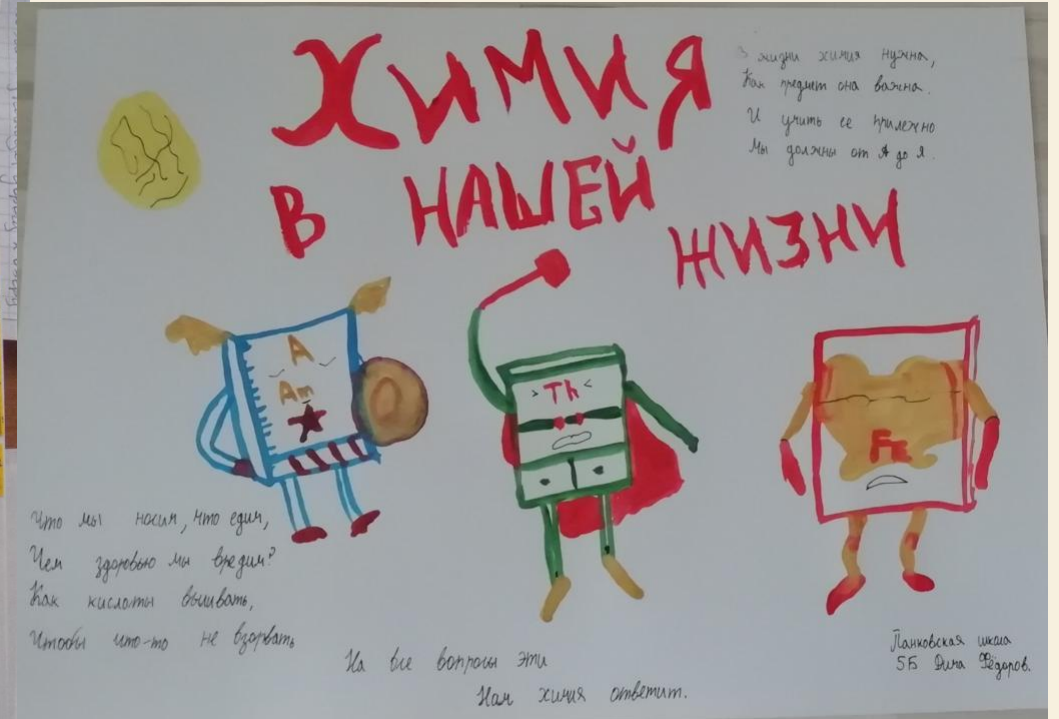 ХИМИЯ
В НАШЕЙ
ЖИЗНИ
В жизни химия нужна,
Как предмет она важна.
И учить ее прилежно
Мы должны от А до Я.
A
Am
Th
Fe
Что мы носим, что едим,
Чем здоровью мы вредим?
Как кислоты выливать,
Чтобы что-то не взорвать
На все вопросы эти
Нам химия ответит.
Панковская школа
5Б Дима Фёдоров.